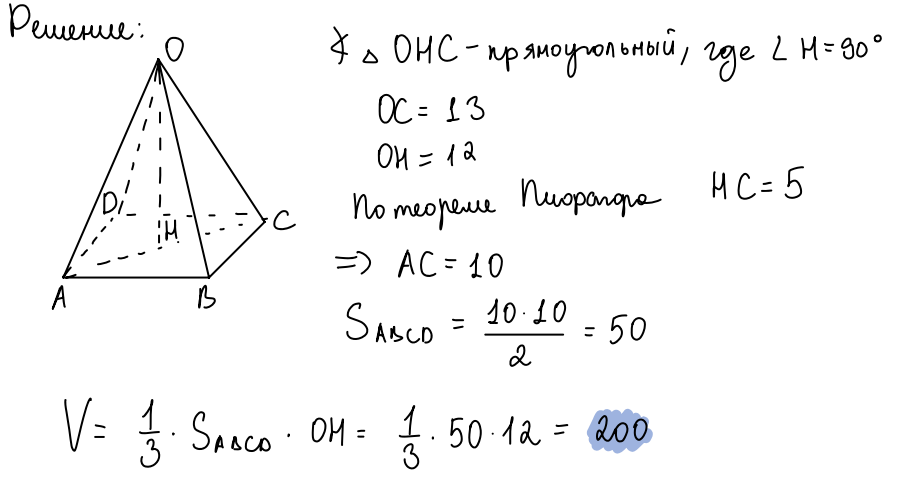 Решение:
O
D
H
C
A
B
∢ △ OHC - прямоугольный, где ∠ H = 90°
OC = 13
OH = 12
По теореме Пифагора HC = 5
=> AC = 10
S_ABCD = (10 · 10)/2 = 50
V = 1/3 · S_ABCD · OH = 1/3 · 50 · 12 = 200